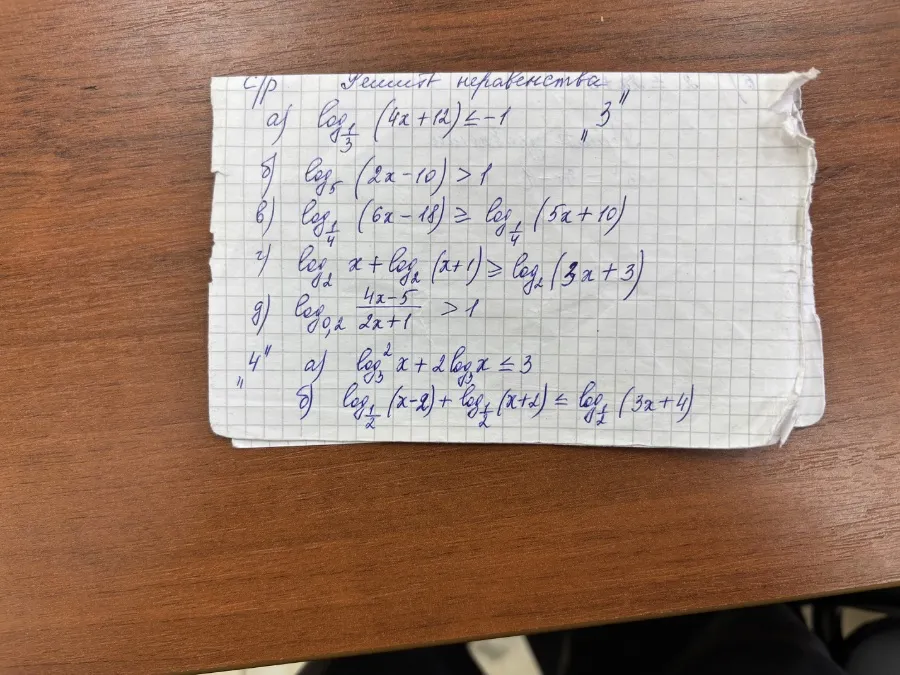 с/р Решить неравенства
а) log_{1/3} (4x+12) ≤ -1 „3"
б) log_5 (2x-10) > 1
в) log_{1/4} (6x-18) ≥ log_{1/4} (5x+10)
г) log_2 x + log_2 (x+1) ≥ log_2 (3x+3)
д) log_{0,2} \frac{4x-5}{2x+1} > 1
„4" а) log_3^2 x + 2 log_3 x ≤ 3
б) log_{1/2} (x-2) + log_{1/2} (x+2) ≤ log_{1/2} (3x+4)